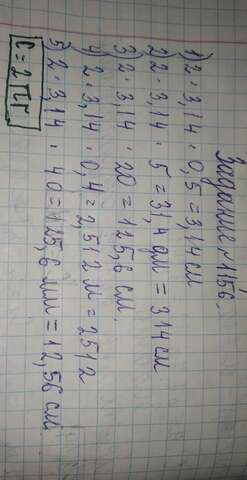 Задание №1156.
1) 2 · 3,14 · 0,5 = 3,14 см
2) 2 · 3,14 · 5 = 31,4 дм = 314 см
3) 2 · 3,14 · 20 = 125,6 см.
4) 2 · 3,14 · 0,4 = 2,512 м = 2512
5) 2 · 3,14 · 40 = 125,6 мм = 12,56 см
C = 2πr